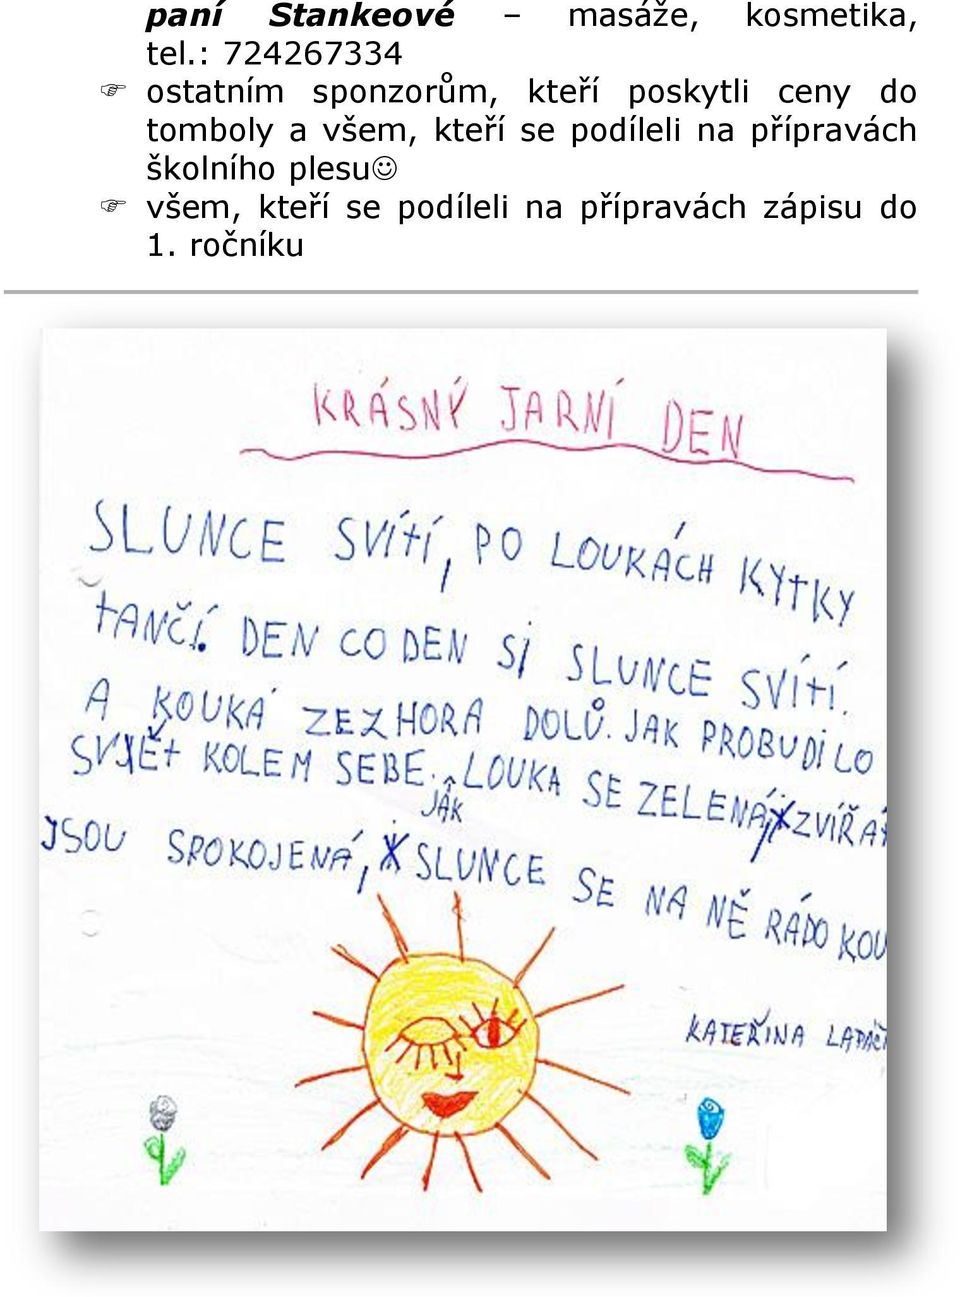 paní Stankeové – masáže, kosmetika,
tel.: 724267334
☞ ostatním sponzorům, kteří poskytli ceny do
tomboly a všem, kteří se podíleli na přípravách
školního plesu☺
☞ všem, kteří se podíleli na přípravách zápisu do
1. ročníku
KRÁSNÝ JARNÍ DEN
SLUNCE SVÍTÍ, PO LOUKÁCH KYTKY
TANČÍ. DEN CO DEN SI SLUNCE SVÍTÍ.
A KOUKÁ ZEZHORA DOLŮ. JAK PROBUDILO
SVĚT KOLEM SEBE. LOUKA SE ZELENÁ, ZVÍŘA
JAK
JSOU SPOKOJENÁ, SLUNCE SE NA NĚ RÁDO KOU
KATEŘINA LAPÁČ